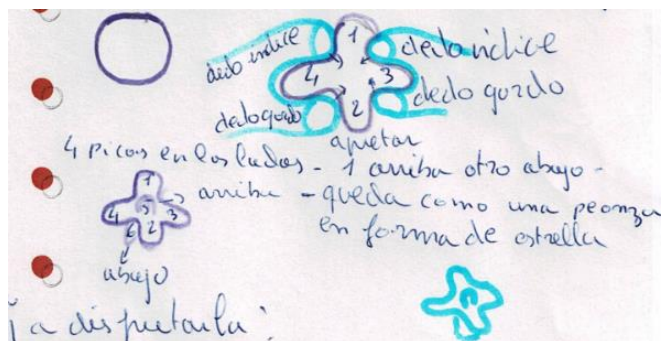 1
dedo indice dedo indice
4 3
dedo gordo dedo gordo
2
apretar
4 picos en los lados - 1 arriba otro abajo -
1
arriba - queda como una peonza
4 5 3
en forma de estrella
6 2
abajo
a disfrutarla!